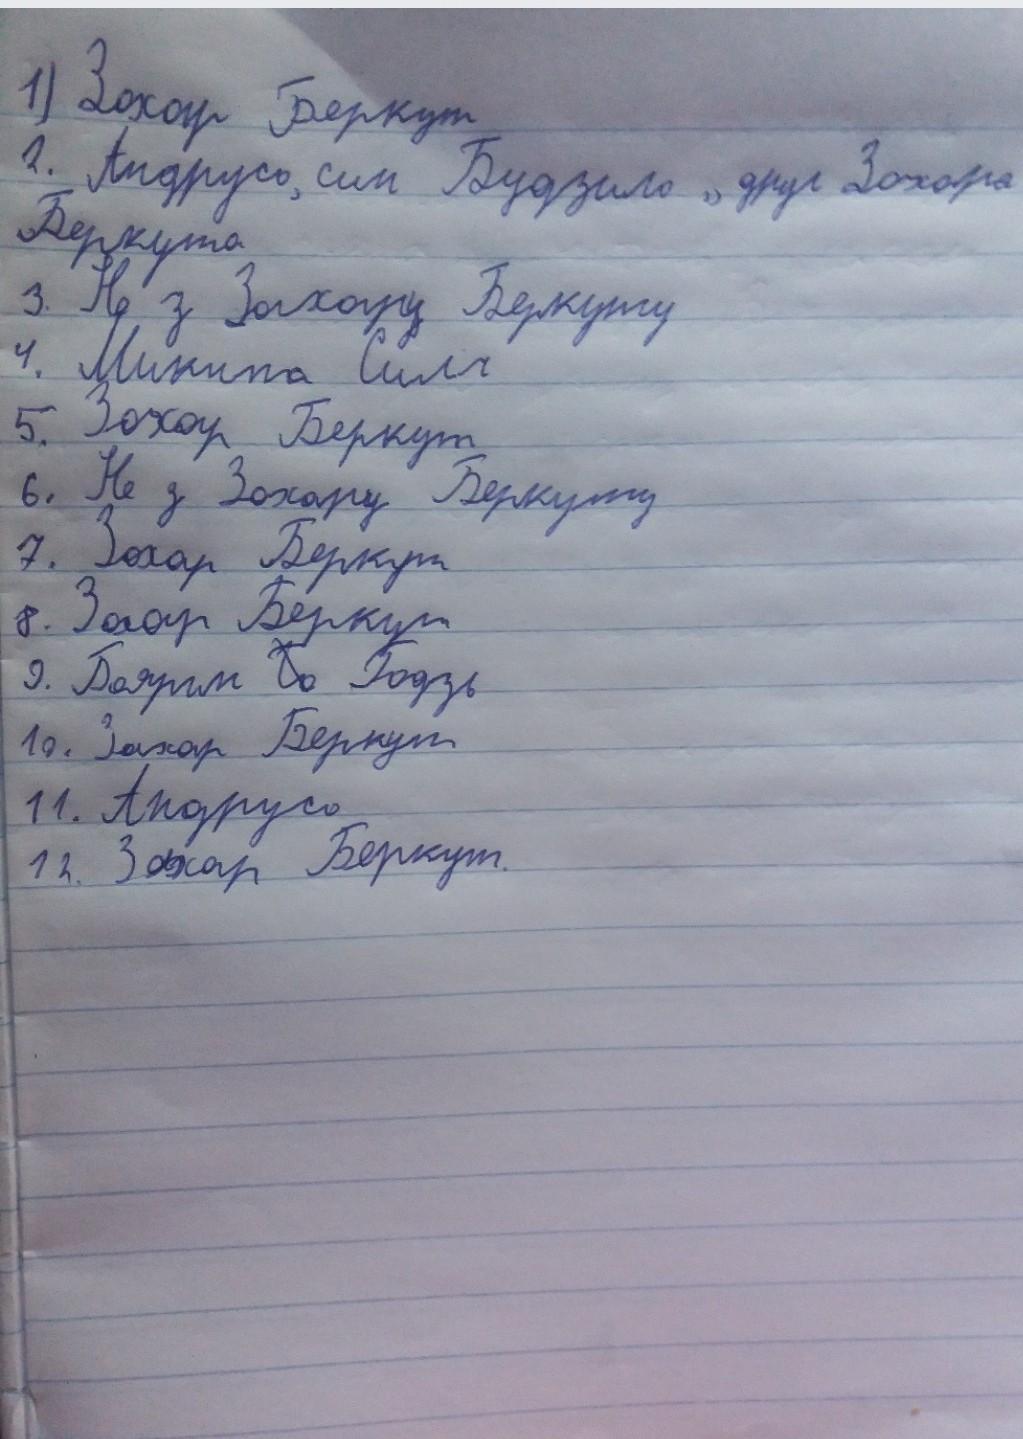 1) Захар Беркут
2. Андрусь, син Будзило, друг Захара
Беркута
3. Не з Захару Беркуту
4. Микита
5. Захар Беркут
6. Не з Захару Беркуту
7. Захар Беркут
8. Захар Беркут
9. Боярин Годзь
10. Захар Беркут
11. Андрусь
12. Захар Беркут.